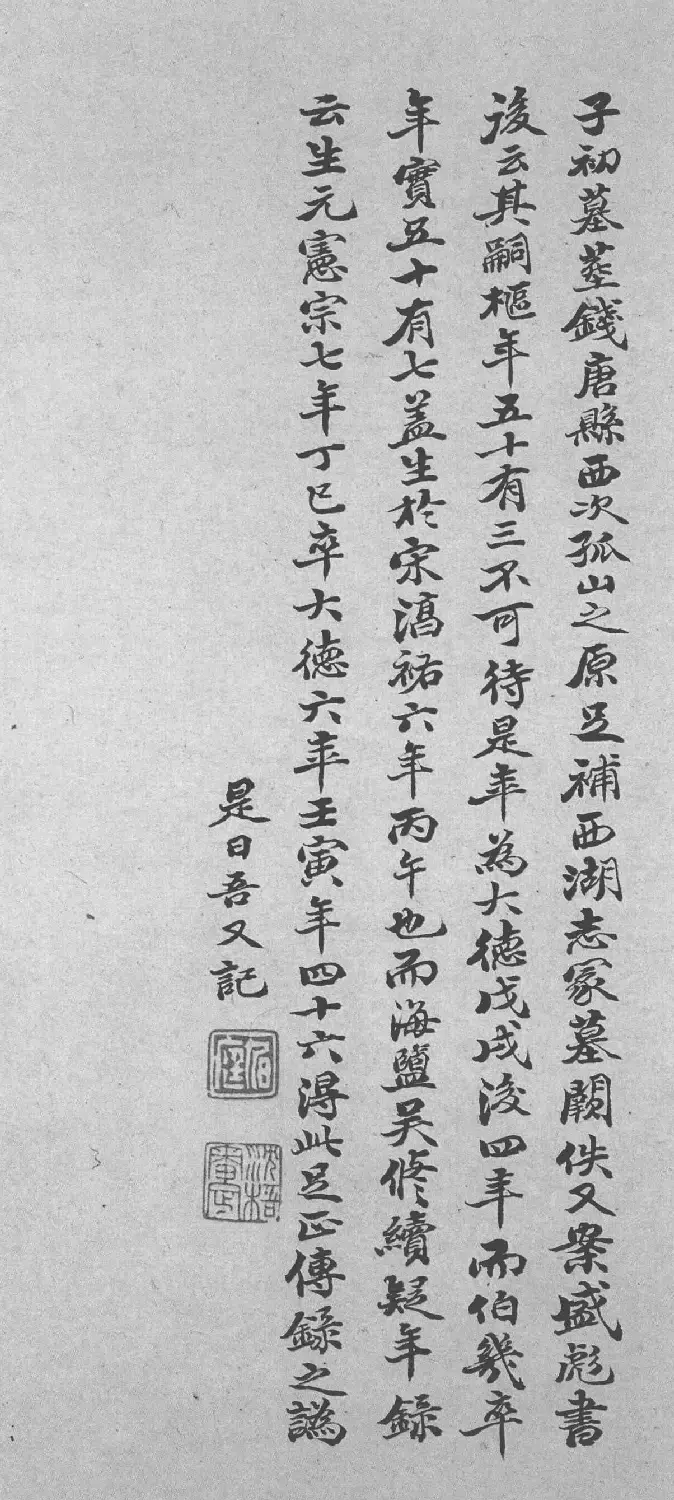 子初墓莖錢唐縣西次孤山之原足補西湖志冢墓闕佚又案盛彪書
後云其嗣樞年五十有三不可待是年為大德戊戌後四年而伯幾卒
年實五十有七蓋生於宋淳祐六年丙午也而海鹽吳修續疑年錄
云生元憲宗七年丁巳卒大德六年壬寅年四十六得此足正傳錄之譌
是日吾又記